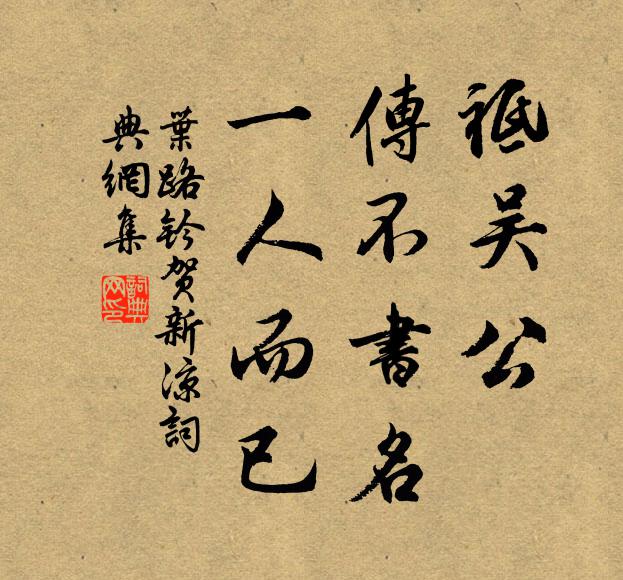 祗吴公
傳不書名
一人而已
葉路鈐贺新涼詞
典網集
詞典网印